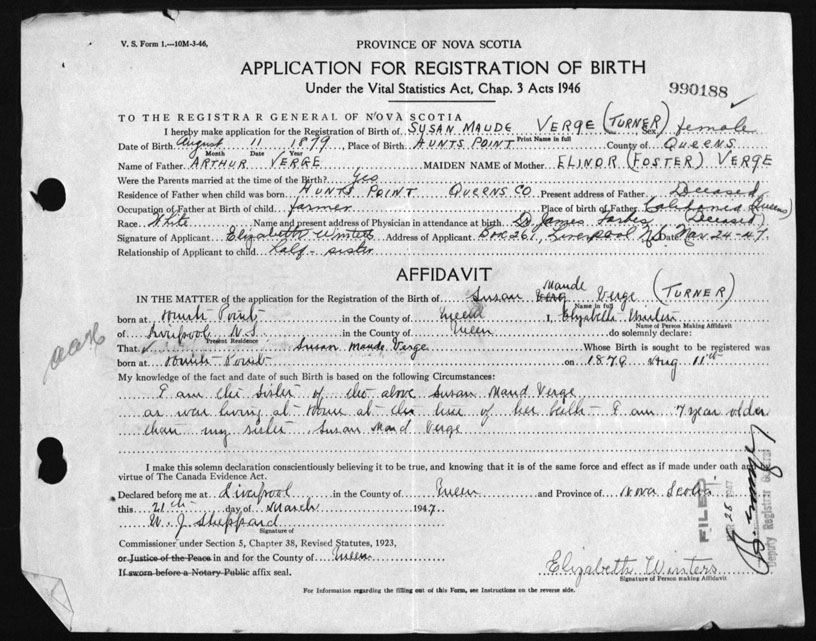 V. S. Form 1.—10M-3-46,
PROVINCE OF NOVA SCOTIA
APPLICATION FOR REGISTRATION OF BIRTH
Under the Vital Statistics Act, Chap. 3 Acts 1946
990188
TO THE REGISTRAR GENERAL OF NOVA SCOTIA
I hereby make application for the Registration of Birth of SUSAN MAUDE VERGE (TURNER) Sex female
Print Name in full
Date of Birth August 11 1879 Place of Birth HUNTS POINT County of QUEENS
Month Date Year
Name of Father ARTHUR VERGE MAIDEN NAME of Mother ELINOR (FOSTER) VERGE
Were the Parents married at time of the Birth? Yes
Residence of Father when child was born HUNTS POINT QUEENS CO Present address of Father Deceased
Occupation of Father at Birth of child farmer Place of birth of Father (Queens)
Race White Name and present address of Physician in attendance at birth Dr James (Deceased)
Signature of Applicant Elizabeth Winters Address of Applicant Box 261, Liverpool N.S. Date Mar 24-47
Relationship of Applicant to child half-sister
AFFIDAVIT
IN THE MATTER of the application for the Registration of the Birth of Susan Maude Verge (TURNER)
Name in full
born at Hunts Point in the County of Queen I, Elizabeth Winters
Name of Person Making Affidavit
of Liverpool N.S. in the County of Queen do solemnly declare:
Present Residence
That Susan Maude Verge Whose Birth is sought to be registered was
born at Hunts Point on 1879 Aug 11th
My knowledge of the fact and date of such Birth is based on the following Circumstances:
I am the sister of the above Susan Maud Verge
as was living at Home at the time of her birth - I am 7 year older
than my sister, Susan Maud Verge
I make this solemn declaration conscientiously believing it to be true, and knowing that it is of the same force and effect as if made under oath and
virtue of The Canada Evidence Act.
Declared before me at Liverpool in the County of Queen and Province of Nova Scotia
this 21th day of March 1947
W. J. Sheppard
Signature of
Commissioner under Section 5, Chapter 38, Revised Statutes, 1923,
or Justice of the Peace in and for the County of Queen
If sworn before a Notary Public affix seal.
Elizabeth Winters
Signature of Person making Affidavit
FILED
MAR 26 1947
Deputy Registrar General
For Information regarding the filling out of this Form, see Instructions on the reverse side.